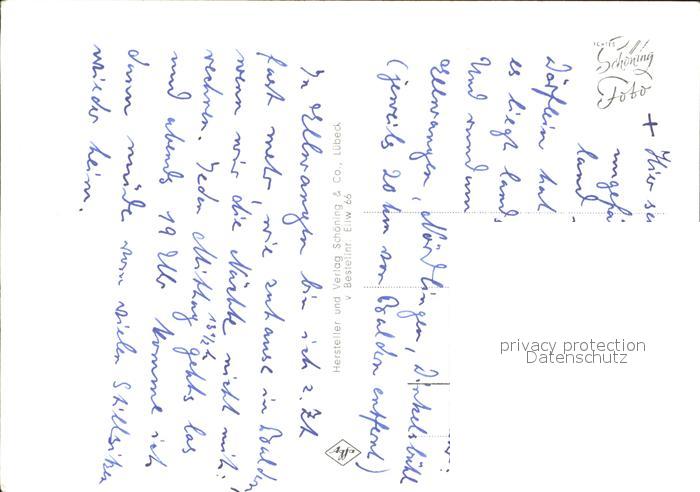 ECHTES
Schöning
Foto
+ Hier se
ungefä
land,
Dörflein hat
es liegt land,
Und rund um
Ellwangen, Nördlingen, Dinkelsbühl
(jeweils 20 km von Balden entfernt)
In Ellwangen bin ich z. Zt
fast mehr, wie zuhause in Balden
wenn wir die Nächte nicht mit-
rechnen. Jeden Mittag gehts los
13 1/2 h
und abends 19 Uhr komme ich
dann müde vom vielen Stillsitzen
wieder heim.
Hersteller und Verlag Schöning & Co., Lübeck
v Bestellnr. Ellw 66
privacy protection
Datenschutz